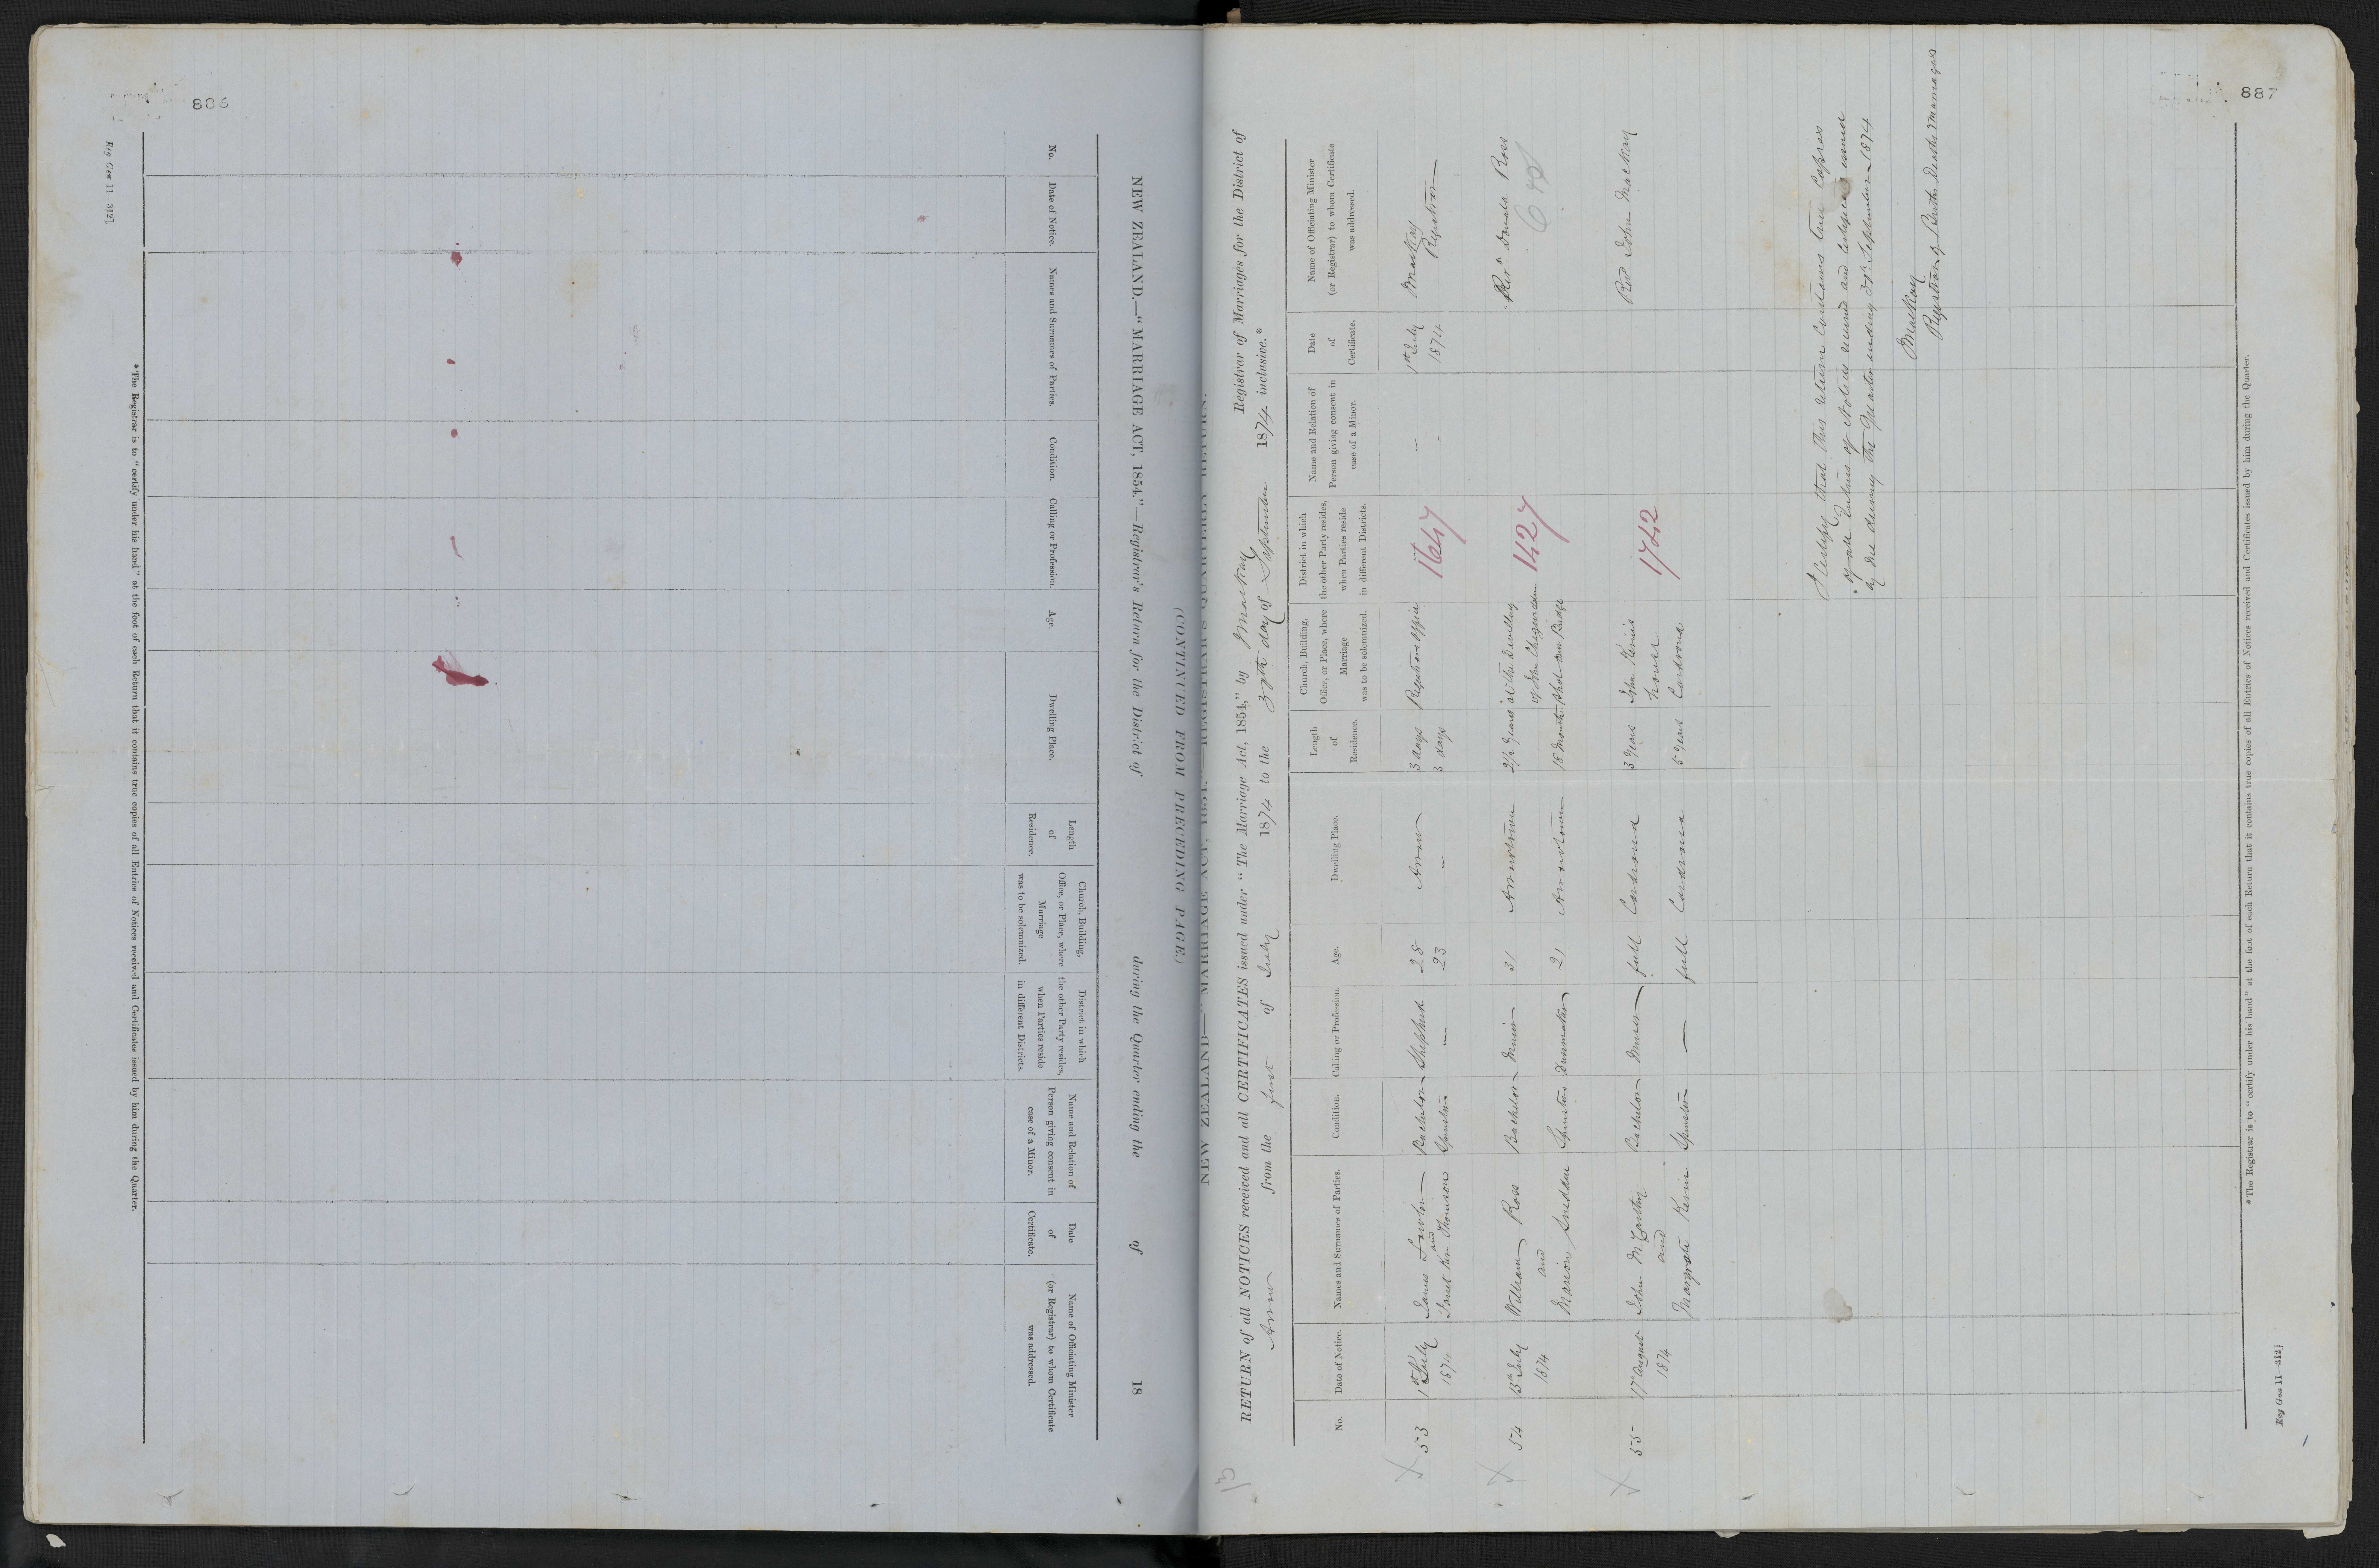 886
Reg Gen 11—312]
NEW ZEALAND.—"MARRIAGE ACT, 1854."—Registrar's Return for the District of during the Quarter ending the of 18
(CONTINUED FROM PRECEDING PAGE.)
No.
Date of Notice.
Names and Surnames of Parties.
Condition.
Calling or Profession.
Age.
Dwelling Place.
Length
of
Residence.
Church, Building,
Office, or Place, where
Marriage
was to be solemnized.
District in which
the other Party resides,
when Parties reside
in different Districts.
Name and Relation of
Person giving consent in
case of a Minor.
Date
of
Certificate.
Name of Officiating Minister
(or Registrar) to whom Certificate
was addressed.
*The Registrar is to "certify under his hand" at the foot of each Return that it contains true copies of all Entries of Notices received and Certificates issued by him during the Quarter.
887
13
NEW ZEALAND—"MARRIAGE ACT, 1854."—REGISTRAR'S QUARTERLY RETURN.
RETURN of all NOTICES received and all CERTIFICATES issued under "The Marriage Act, 1854," by MacKay Registrar of Marriages for the District of
Arrow from the first of July 1874 to the 30th day of September 1874 inclusive.*
No.
Date of Notice.
Names and Surnames of Parties.
Condition.
Calling or Profession.
Age.
Dwelling Place.
Length
of
Residence.
Church, Building,
Office, or Place, where
Marriage
was to be solemnized.
District in which
the other Party resides,
when Parties reside
in different Districts.
Name and Relation of
Person giving consent in
case of a Minor.
Date
of
Certificate.
Name of Officiating Minister
(or Registrar) to whom Certificate
was addressed.
53
1st July
1874
James Lawton
and
Janet Ker Thomson
Bachelor
Spinster
Shepherd
—
28
23
Arrow
—
3 days
3 days
Registrars office
1647
—
-
1st July
1874
MacKay
Registrar
54
13th July
1874
William Ross
and
Marion Sneddon
Bachelor
Spinster
Miner
Dressmaker
31
21
Arrowtown
Arrowtown
2½ years
18 Months
at the Dwelling
of John
Shotover Bridge
1427
Revd Donald Ross
55
17 August
1874
John McCarthy
and
Margrate Kevin
Bachelor
Spinster
Miner
—
full
full
Cardrona
Cardrona
3 years
5 years
John Kevins
house
Cardrona
1742
Rev John MacKay
I Certify that this return Contains true Copies
of all Entries of Notices received and Certificates issued
by me during the Quarter ending 30th September 1874
MacKay
Registrar of Births Deaths & Marriages
*The Registrar is to "certify under his hand" at the foot of each Return that it contains true copies of all Entries of Notices received and Certificates issued by him during the Quarter.
Reg Gen 11—312]